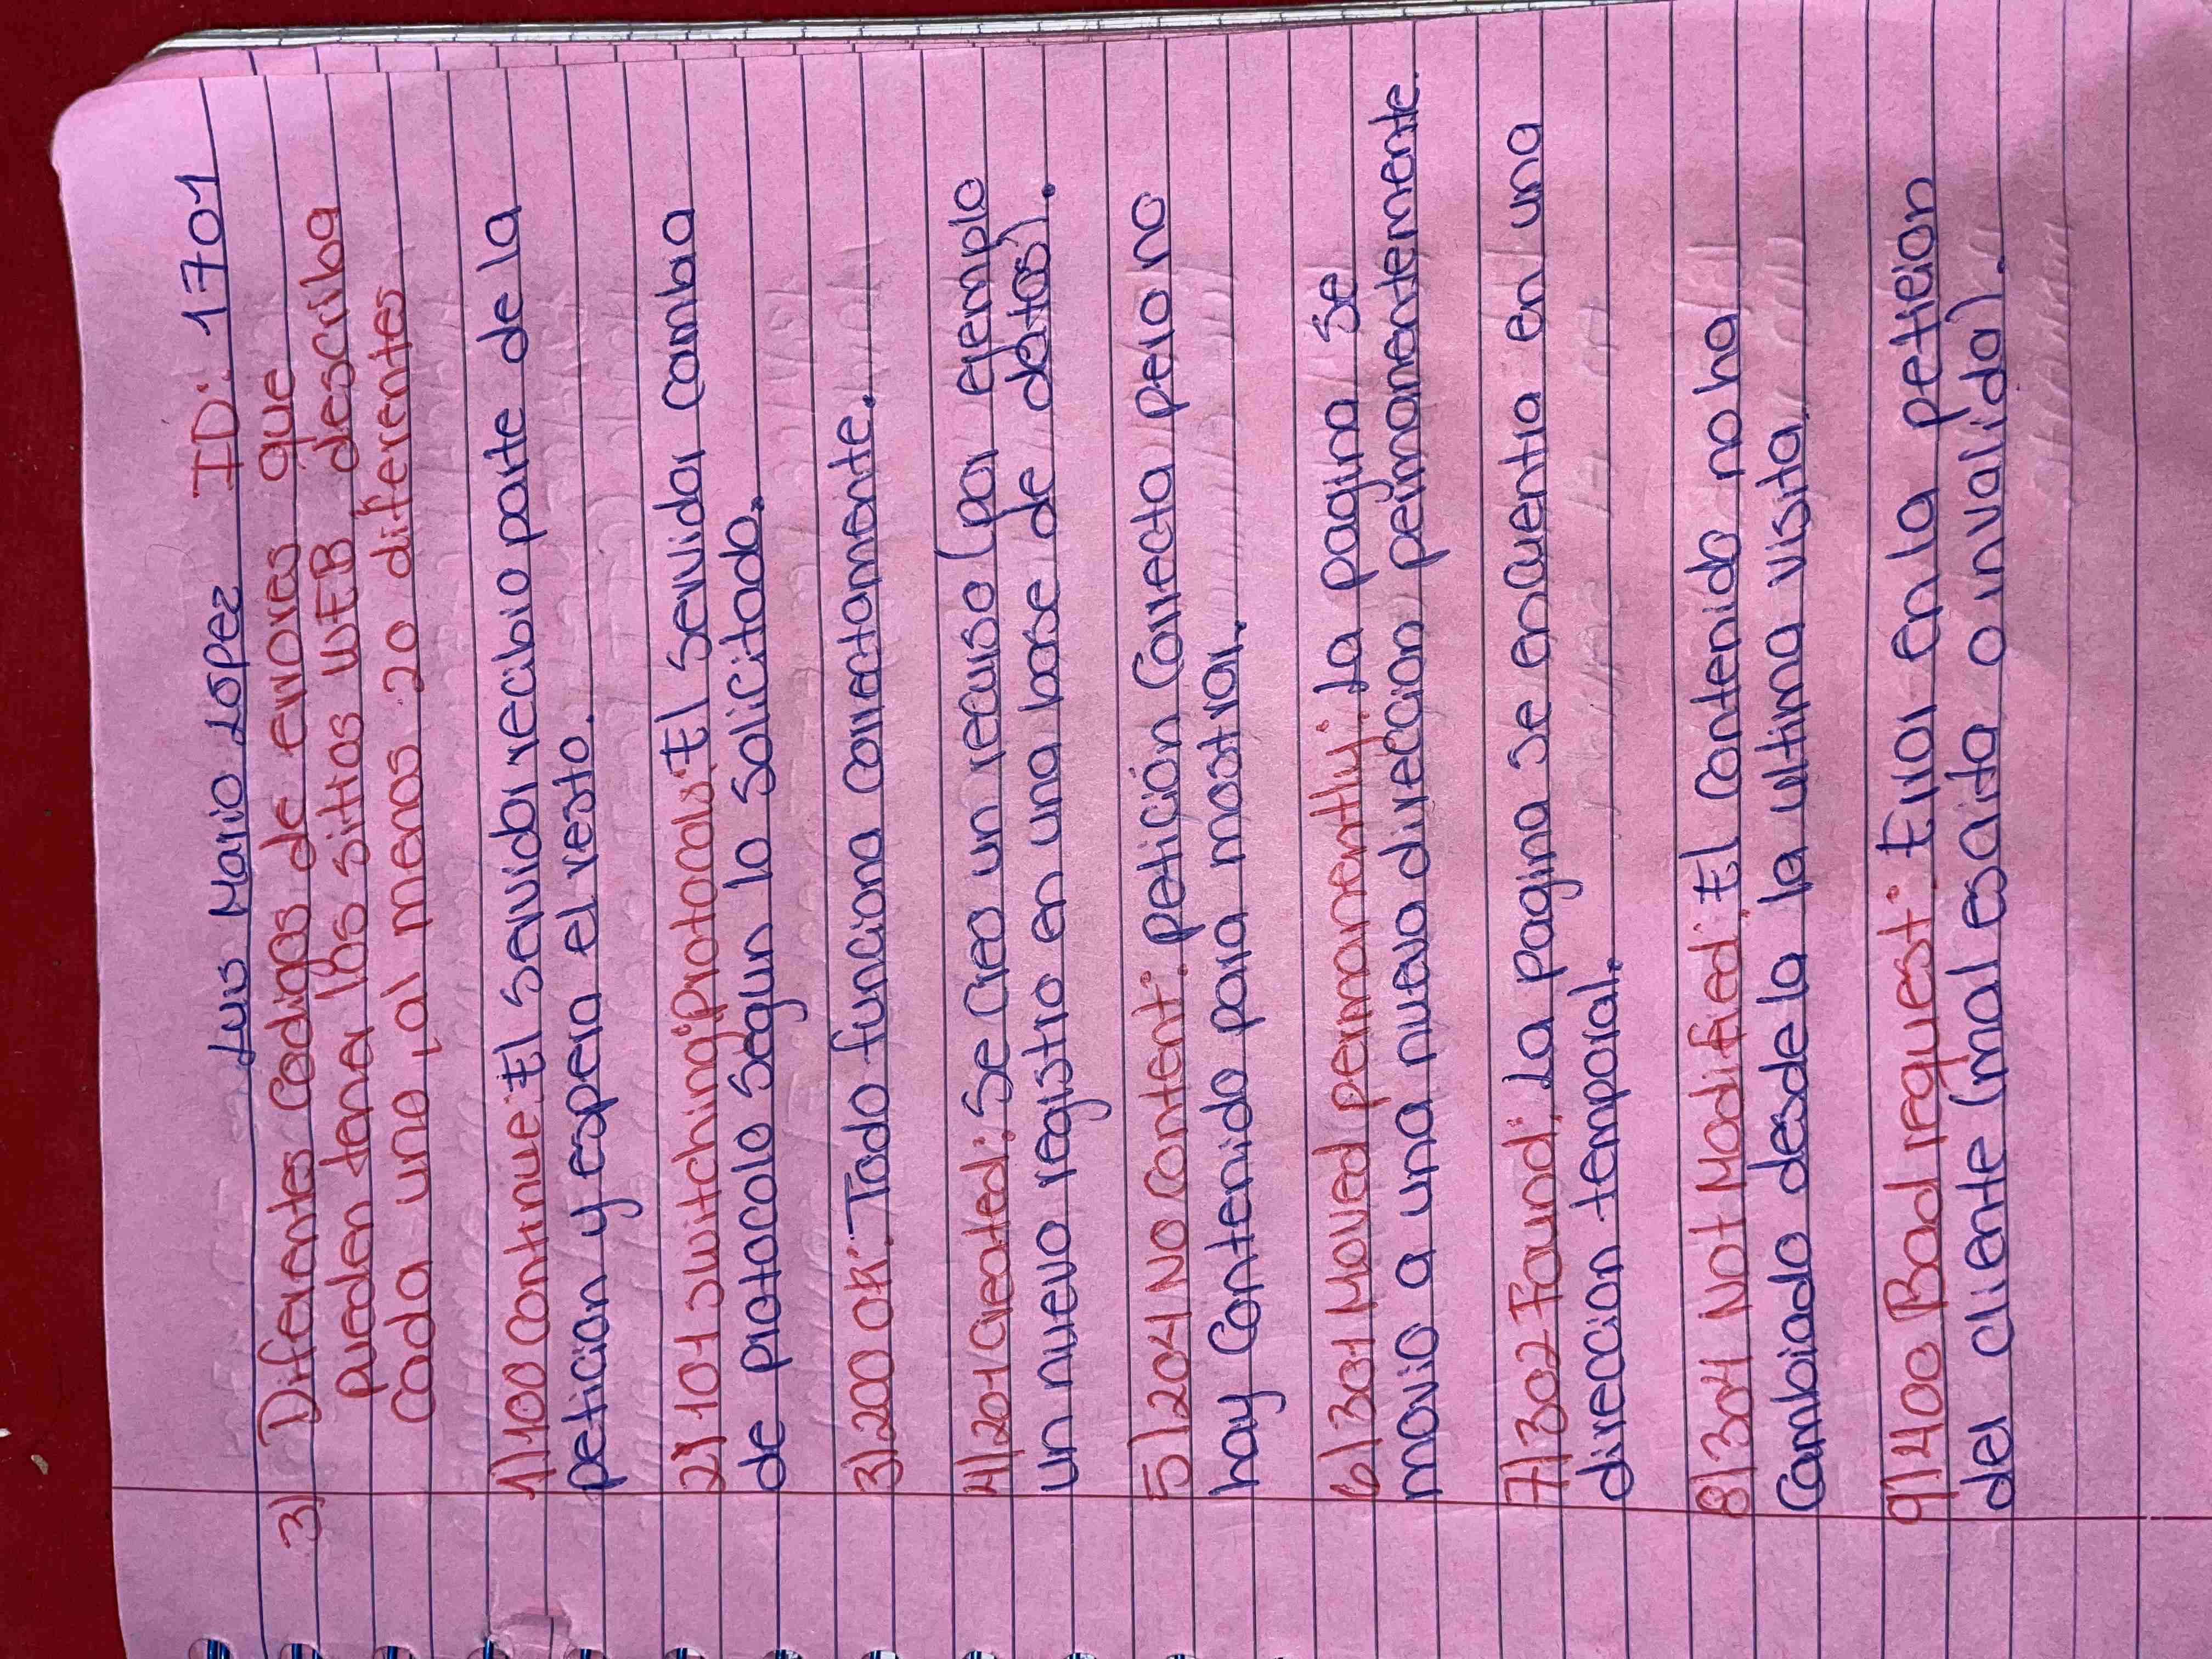 Luis Mario Lopez ID: 1701
3) Diferentes codigos de errores que
pueden tener los sitios WEB, describa
cada uno, al menos 20 diferentes
1) 100 Continue: El Servidor recibio parte de la
peticion y espera el resto.
2) 101 Switching protocols: El servidor cambia
de protocolo segun lo solicitado.
3) 200 OK: Todo funciona correctamente.
4) 201 Created: Se creo un recurso (por ejemplo
un nuevo registro en una base de datos).
5) 204 No Content: petición Correcta pero no
hay Contenido para mostrar.
6) 301 Moved permanently: La pagina se
movio a una nueva direccion permanentemente.
7) 302 Found: La pagina se encuentra en una
direccion temporal.
8) 304 Not Modified: El contenido no ha
Cambiado desde la ultima visita.
9) 400 Bad request: Error en la peticion
del cliente (mal escrito o invalido).